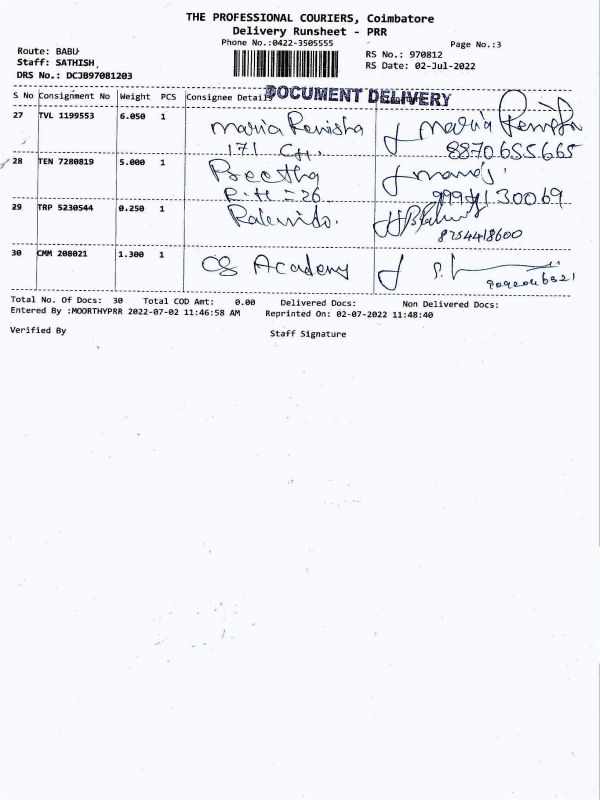 THE PROFESSIONAL COURIERS, Coimbatore
Delivery Runsheet - PRR
Phone No.:0422-3505555
Page No.:3
Route: BABU
Staff: SATHISH
DRS No.: DCJB97081203
RS No.: 970812
RS Date: 02-Jul-2022
S No Consignment No Weight PCS Consignee Details
DOCUMENT DELIVERY
27 TVL 1199553 6.050 1 Maria Renisha Maria Renisha
171 CH. 8870655665
28 TEN 7280819 5.000 1 Preetha
R.H = 26
29 TRP 5230544 0.250 1
8754418600
30 CMM 208021 1.300 1 CS Academy
Total No. Of Docs: 30 Total COD Amt: 0.00 Delivered Docs: Non Delivered Docs:
Entered By :MOORTHYPRR 2022-07-02 11:46:58 AM Reprinted On: 02-07-2022 11:48:40
Verified By Staff Signature